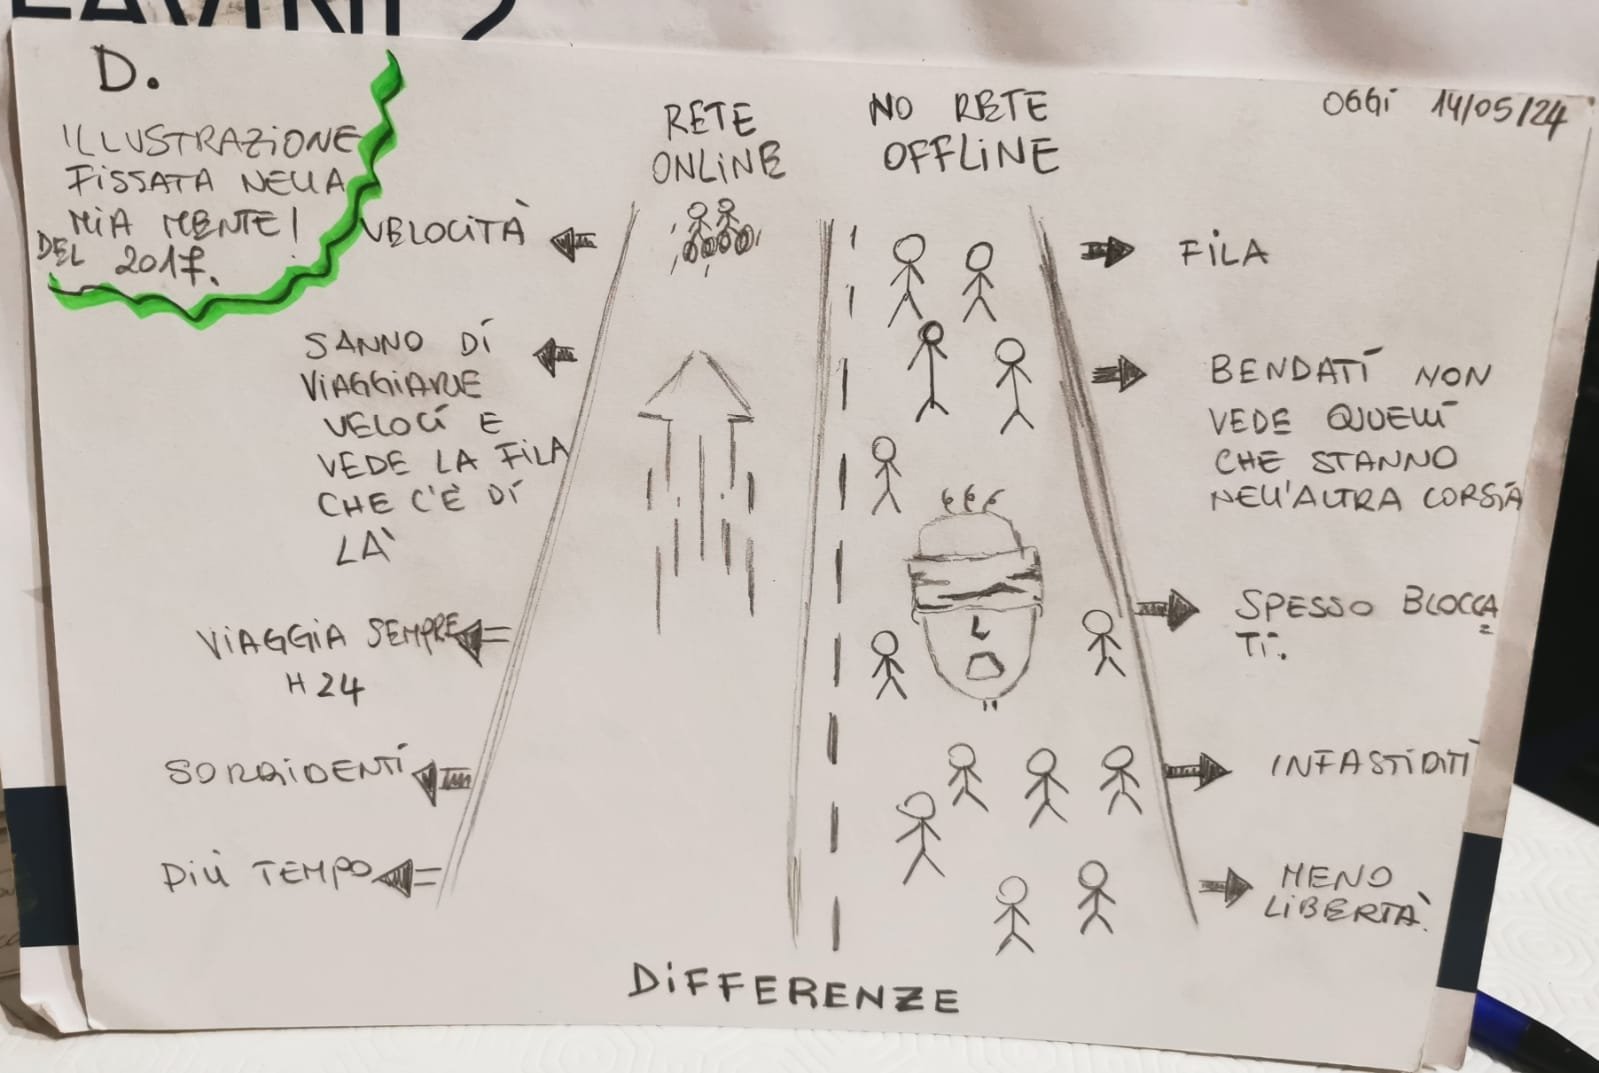 D.
ILLUSTRAZIONE
FISSATA NELLA
MIA MENTE!
DEL 2017.
RETE
ONLINE
NO RETE
OFFLINE
OGGI 14/05/24
VELOCITÀ
SANNO DI
VIAGGIARE
VELOCI E
VEDE LA FILA
CHE C'È DI
LA'
VIAGGIA SEMPRE
H 24
SORRIDENTI
PIÙ TEMPO
FILA
BENDATI NON
VEDE QUELLI
CHE STANNO
NELL'ALTRA CORSIA
SPESSO BLOCCA=
TI.
INFASTIDITI
MENO
LIBERTA'
DIFFERENZE